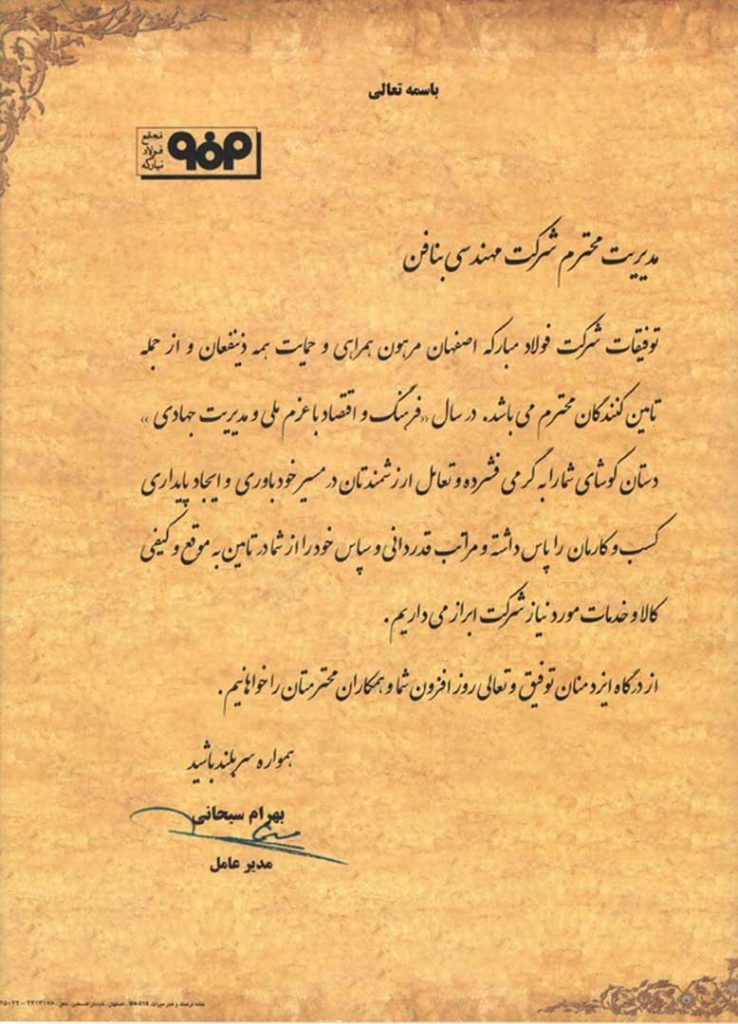 باسمه تعالی
مجتمع
فولاد
مبارکه
مدیریت محترم شرکت مهندسی بنافن
توفیقات شرکت فولاد مبارکه اصفهان مرهون همراهی و حمایت همه ذینفعان و از جمله
تامین کنندگان محترم می باشد. در سال «فرهنگ و اقتصاد با عزم ملی و مدیریت جهادی»
دستان کوشای شما را به گرمی فشرده و تعامل ارزشمندتان در مسیر خودباوری و ایجاد پایداری
کسب و کارمان را پاس داشته و مراتب قدردانی و سپاس خود را از شما در تامین به موقع و کیفی
کالا و خدمات مورد نیاز شرکت ابراز می داریم.
از درگاه ایزد منان توفیق و تعالی روز افزون شما و همکاران محترمتان را خواهانیم.
همواره سربلند باشید
بهرام سبحانی
مدیر عامل